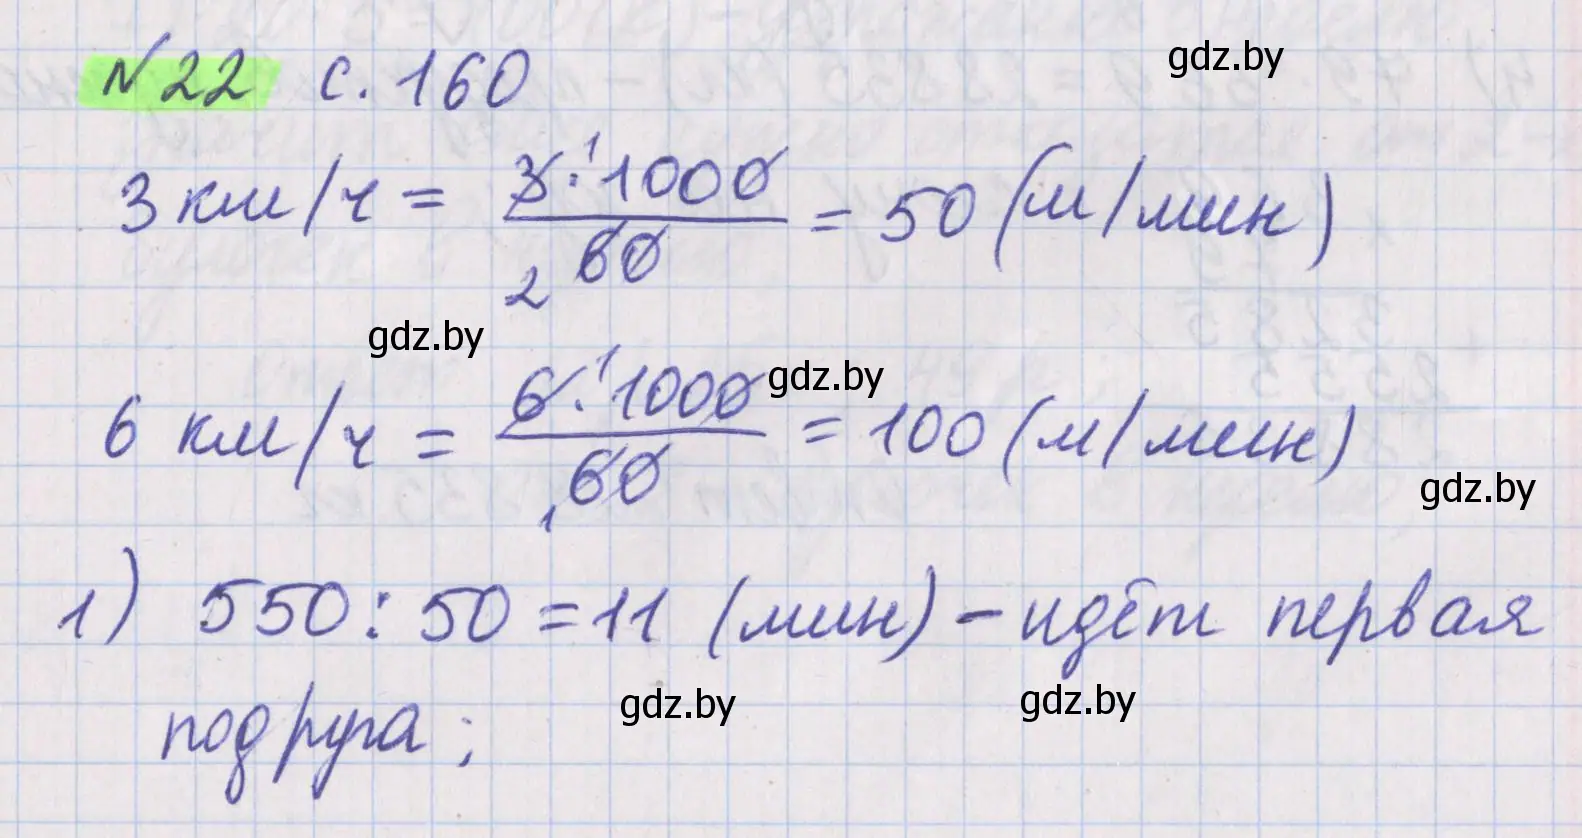 №22 с. 160
gdz.by
3 км/ч = 3·1000/60 = 50 (м/мин)
1
2
gdz.by
gdz.by
6 км/ч = 6·1000/60 = 100 (м/мин)
1
1
gdz.by
1) 550 : 50 = 11 (мин) – идёт первая
подруга;
gdz.by
gdz.by